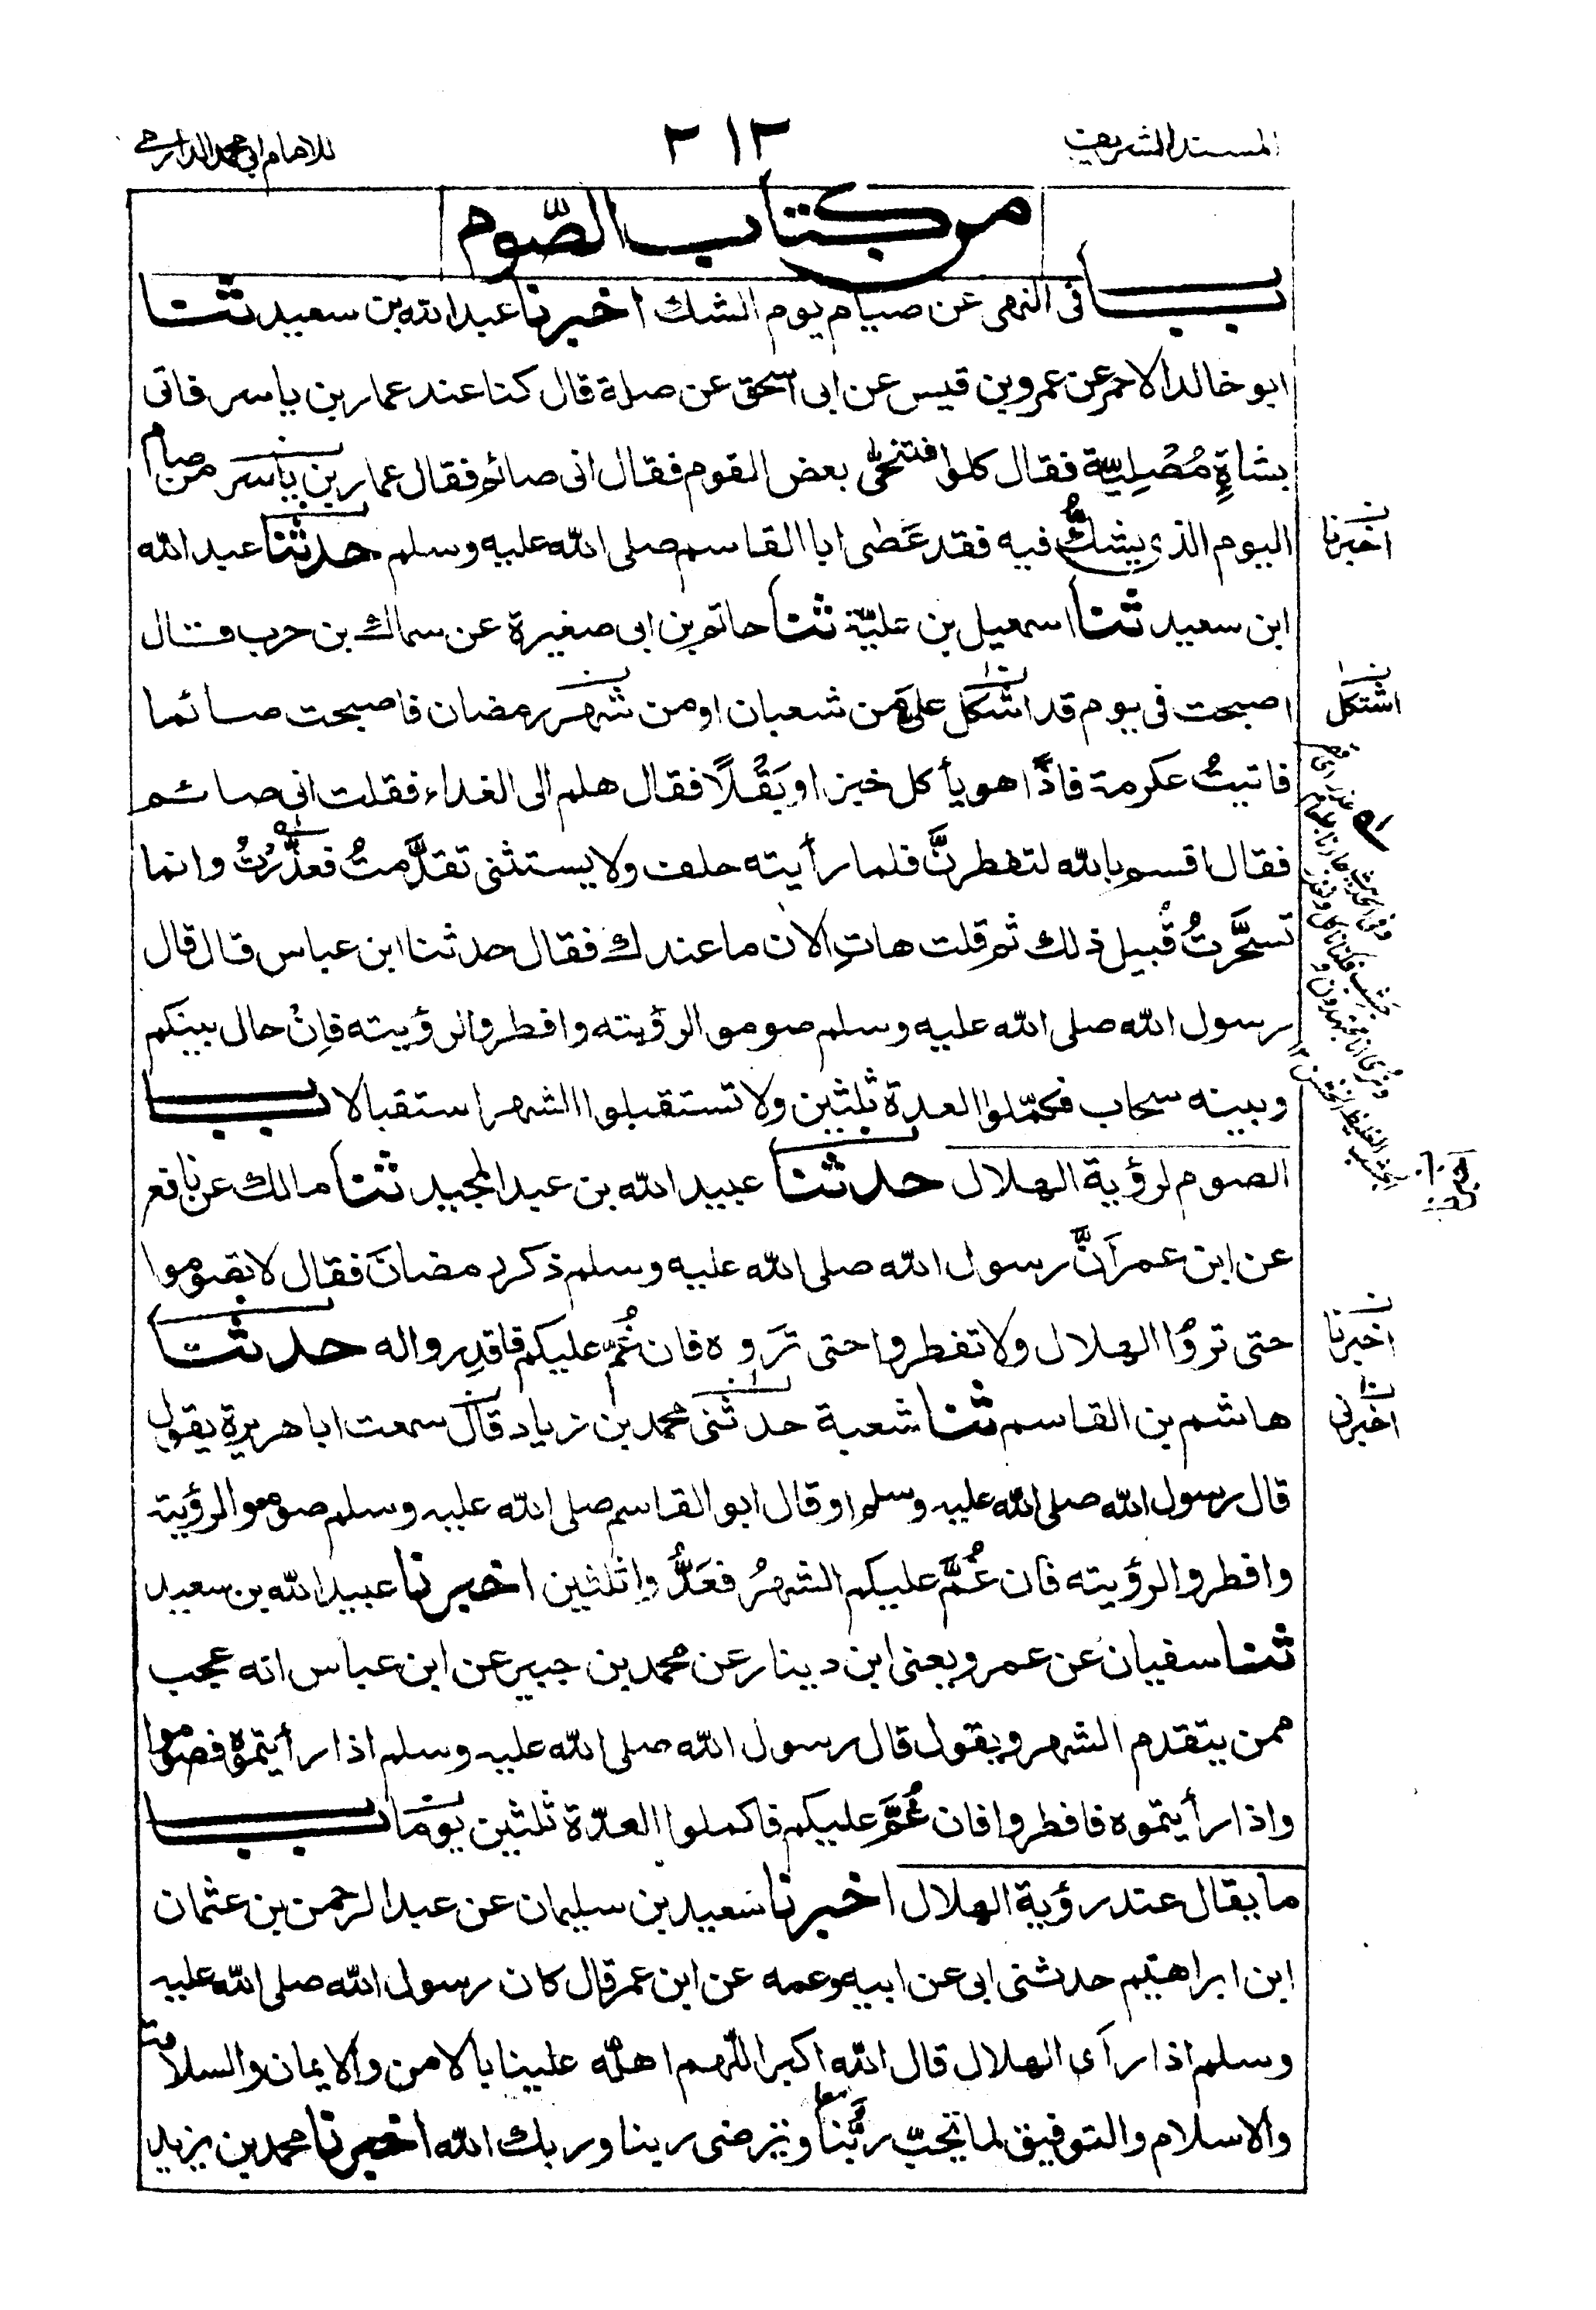 المسند الشريف
٢١٢
للامام ابي محمد الدارمي
من كتاب الصّوم
باب فى النهى عن صيام يوم الشك اخبرنا عبد الله بن سعيد ثنا
ابو خالد الاحمر عن عمرو بن قيس عن ابى اسحق عن صلة قال كنا عند عمار بن ياسر فاتى
بشاةٍ مُصْلِيّة فقال كلوا فتنحّٰى بعض القوم فقال انى صائم فقال عمار بن ياسر من صام
اليوم الذى يشكُّ فيه فقد عَصٰى ابا القاسم صلى الله عليه وسلم حدثنا عبد الله
ابن سعيد ثنا اسمعيل بن عليّة ثنا حاتم بن ابى صغيرة عن سماك بن حرب قال
اصبحت فى يوم قد اشكل علىَّ من شعبان او من شهر رمضان فاصبحت صائما
فاتيتُ عكرمة فاذًا هو يأكل خبز او بَقْلًا فقال هلم الى الغداء فقلت انى صائم
فقال اقسم بالله لتفطرنَّ فلما رأيته حلف ولا يستثنى تقدَّمتُ فعذَّرْتُ وانما
تسحَّرتُ قُبيل ذلك ثم قلت هاتِ الان ما عندك فقال حدثنا ابن عباس قال قال
رسول الله صلى الله عليه وسلم صوموا لرؤيته وافطروا لرؤيته فاِنْ حال بينكم
وبينه سحاب فكمّلوا العدة ثلثين ولا تستقبلوا الشهر استقبالا باب
الصوم لرؤية الهلال حدثنا عبيد الله بن عبد المجيد ثنا مالك عن نافع
عن ابن عمر اَنَّ رسول الله صلى الله عليه وسلم ذكر رمضانَ فقال لا تصوموا
حتى تروُا الهلال ولا تفطروا حتى تَروه فان غُمّ عليكم فاقدِروا له حدثنا
هاشم بن القاسم ثنا شعبة حدثنى محمد بن زياد قال سمعت ابا هريرة يقول
قال رسول الله صلى الله عليه وسلم او قال ابو القاسم صلى الله عليه وسلم صوموا لرؤيته
وافطروا لرؤيته فان غُمَّ عليكم الشهرُ فعَدُّوا ثلثين اخبرنا عبيد الله بن سعيد
ثنا سفيان عن عمرو يعنى ابن دينار عن محمد بن جبير عن ابن عباس انه عجب
ممن يتقدم الشهر ويقول قال رسول الله صلى الله عليه وسلم اذا رأيتموه فصوموا
واذا رأيتموه فافطروا فان غُمَّ عليكم فاكملوا العدّة ثلثين يوما باب
ما يقال عند رؤية الهلال اخبرنا سَعيد بن سليمان عن عبد الرحمن بن عثمان
ابن ابراهيم حدثنى ابى عن ابيه وعمه عن ابن عمر قال كان رسول الله صلى الله عليه
وسلم اذا رأى الهلال قال الله اكبر اللهم اهلّه علينا بالامن والايمان والسلامة
والاسلام والتوفيق لما تحبّ ربَّنا وترضى ربنا وربك الله اخبرنا محمد بن يزيد
اخبرنا
اشتكل
اخبرنا
اخبرنى